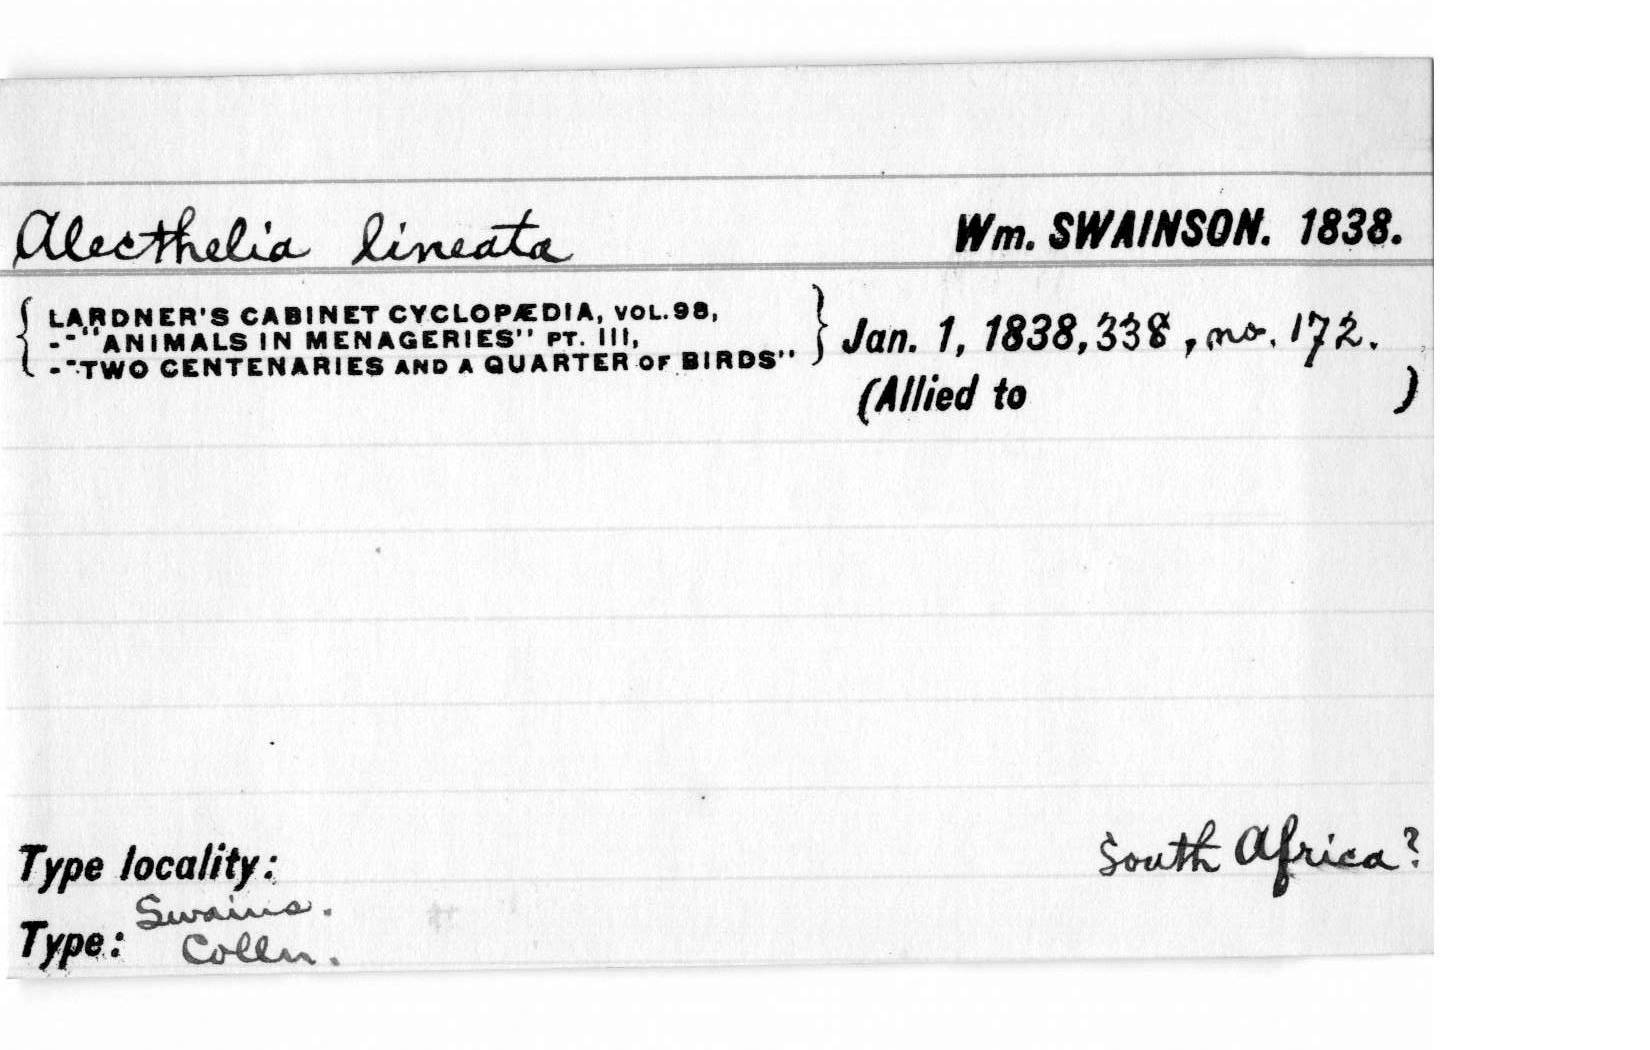 Alecthelia lineata Wm. SWAINSON. 1838.
{ LARDNER'S CABINET CYCLOPÆDIA, VOL. 98,
-- "ANIMALS IN MENAGERIES" PT. III,
-- "TWO CENTENARIES AND A QUARTER OF BIRDS" } Jan. 1, 1838, 338, no. 172.
(Allied to )
Type locality: South Africa?
Swains.
Type: Colln.